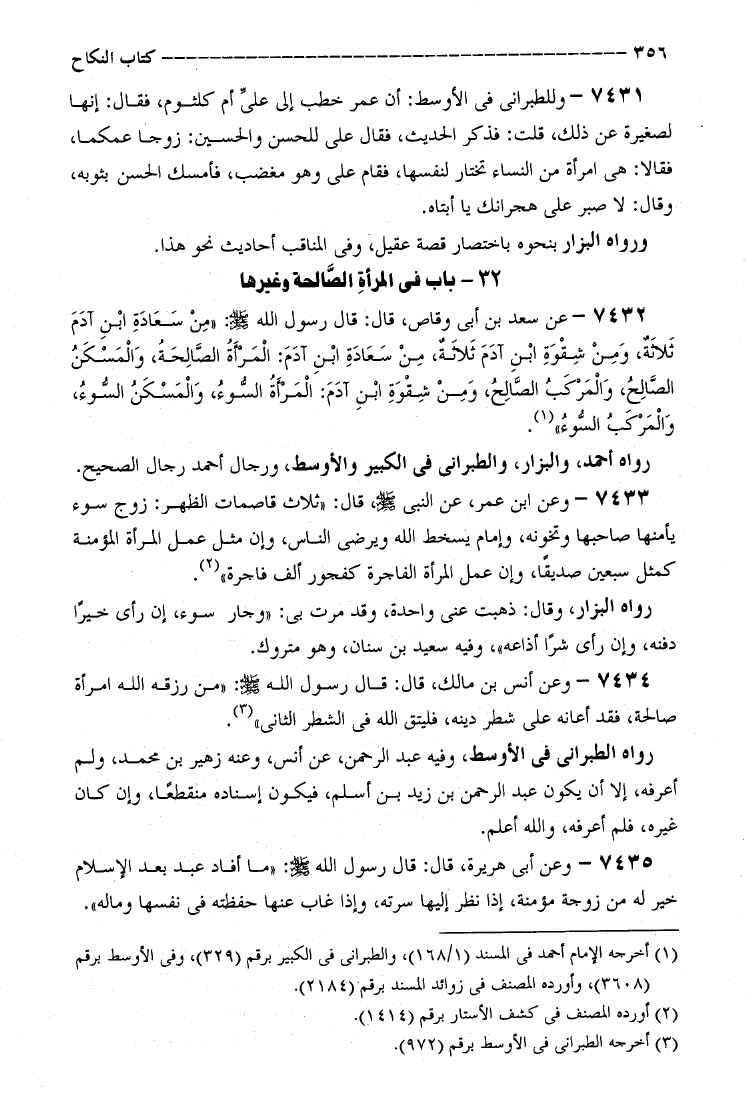 ٣٥٦ ــــــــــــــــــــــــــــــــــــــــــــــــــــــــــــــــــــــــ كتاب النكاح
٧٤٣١ – وللطبرانى فى الأوسط: أن عمر خطب إلى علىِّ أم كلثوم، فقال: إنها
لصغيرة عن ذلك، قلت: فذكر الحديث، فقال على للحسن والحسين: زوجا عمكما،
فقالا: هى امرأة من النساء تختار لنفسها، فقام على وهو مغضب، فأمسك الحسن بثوبه،
وقال: لا صبر على هجرانك يا أبتاه.
ورواه البزار بنحوه باختصار قصة عقيل، وفى المناقب أحاديث نحو هذا.
٣٢ – باب فى المرأة الصَّالحة وغيرها
٧٤٣٢ – عن سعد بن أبى وقاص، قال: قال رسول الله ﷺ: «مِنْ سَعَادَةِ ابْنِ آدَمَ
ثَلاَثَةٌ، وَمِنْ شِقْوَةِ ابْنِ آدَمَ ثَلاَثَةٌ، مِنْ سَعَادَةِ ابْنِ آدَمَ: الْمَرْأَةُ الصَّالِحَةُ، وَالْمَسْكَنُ
الصَّالِحُ، وَالْمَرْكَبُ الصَّالِحُ، وَمِنْ شِقْوَةِ ابْنِ آدَمَ: الْمَرْأَةُ السُّوءُ، وَالْمَسْكَنُ السُّوءُ،
وَالْمَرْكَبُ السُّوءُ»(١).
رواه أحمد، والبزار، والطبرانى فى الكبير والأوسط، ورجال أحمد رجال الصحيح.
٧٤٣٣ – وعن ابن عمر، عن النبى ﷺ، قال: «ثلاث قاصمات الظهر: زوج سوء
يأمنها صاحبها وتخونه، وإمام يسخط الله ويرضى الناس، وإن مثل عمل المرأة المؤمنة
كمثل سبعين صديقًا، وإن عمل المرأة الفاجرة كفجور ألف فاجرة»(٢).
رواه البزار، وقال: ذهبت عنى واحدة، وقد مرت بى: «وجار سوء، إن رأى خيرًا
دفنه، وإن رأى شرًا أذاعه»، وفيه سعيد بن سنان، وهو متروك.
٧٤٣٤ – وعن أنس بن مالك، قال: قال رسول الله ﷺ: «من رزقه الله امرأة
صالحة، فقد أعانه على شطر دينه، فليتق الله فى الشطر الثانى»(٣).
رواه الطبرانى فى الأوسط، وفيه عبد الرحمن، عن أنس، وعنه زهير بن محمد، ولم
أعرفه، إلا أن يكون عبد الرحمن بن زيد بن أسلم، فيكون إسناده منقطعًا، وإن كان
غيره، فلم أعرفه، والله أعلم.
٧٤٣٥ – وعن أبى هريرة، قال: قال رسول الله ﷺ: «ما أفاد عبد بعد الإسلام
خير له من زوجة مؤمنة، إذا نظر إليها سرته، وإذا غاب عنها حفظته فى نفسها وماله».
(١) أخرجه الإمام أحمد فى المسند (١٦٨/١)، والطبرانى فى الكبير برقم (٣٢٩)، وفى الأوسط برقم
(٣٦٠٨)، وأورده المصنف فى زوائد المسند برقم (٢١٨٤).
(٢) أورده المصنف فى كشف الأستار برقم (١٤١٤).
(٣) أخرجه الطبرانى فى الأوسط برقم (٩٧٢).